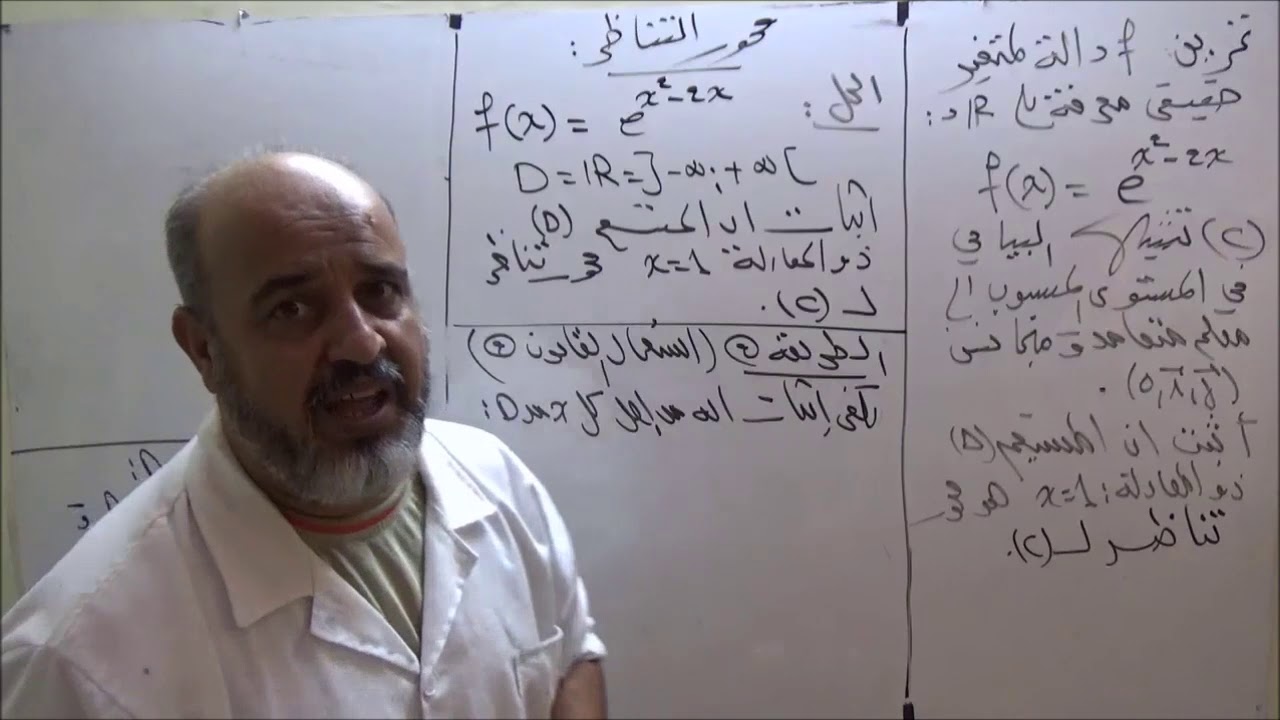 تمرين f دالة لمتغير
حقيقي معرفة على IR بـ:
f(x) = e^{x²-2x}
(C) تمثيلها البياني
في المستوى المنسوب إلى
معلم متعامد و متجانس
(O, i, j).
أثبت ان المستقيم (D)
ذو المعادلة: x=1 هو محور
تناظر لـ (C).
محور التناظر:
الحل:
f(x) = e^{x²-2x}
D = IR = ]-∞; +∞[
اثبات ان المستقيم (D)
ذو المعادلة x=1 محور تناظر
لـ (C).
الطريقة ② (استعمال القانون ②)
يكفي إثبات انه من اجل كل x من D: